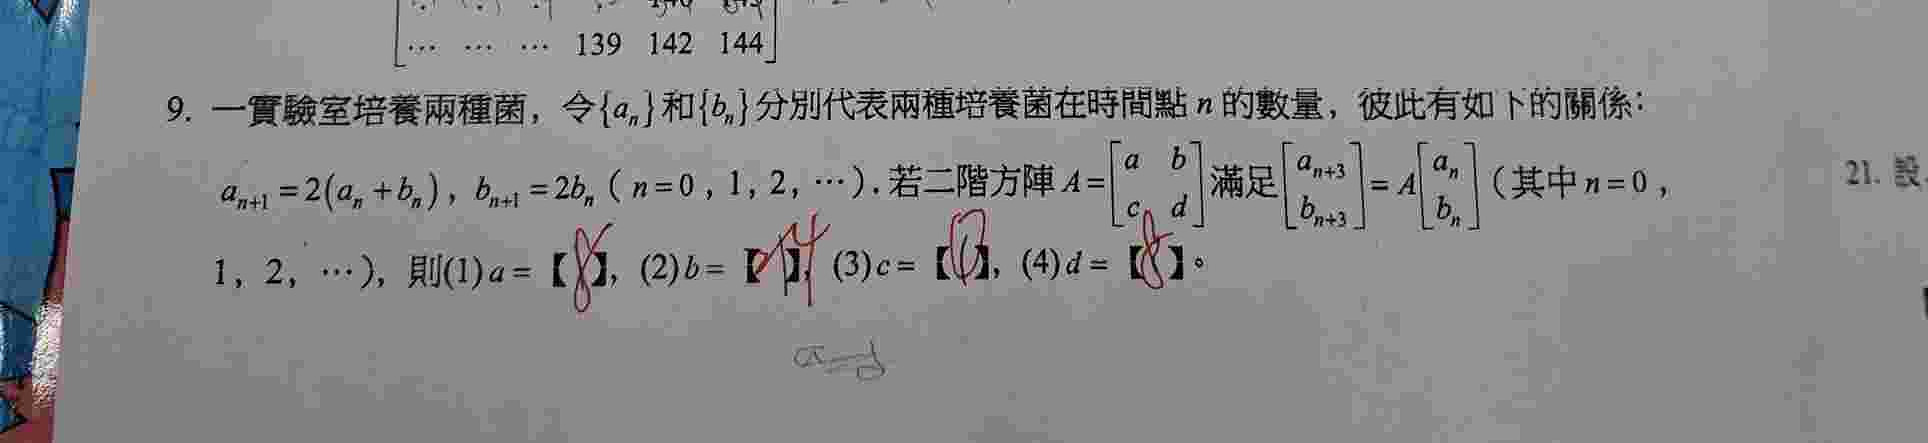 … … … 139 142 144
9. 一實驗室培養兩種菌，令{aₙ}和{bₙ}分別代表兩種培養菌在時間點 n 的數量，彼此有如下的關係：
aₙ₊₁ = 2(aₙ + bₙ)，bₙ₊₁ = 2bₙ（n = 0，1，2，⋯）. 若二階方陣 A = [a b; c d] 滿足 [aₙ₊₃; bₙ₊₃] = A [aₙ; bₙ]（其中 n = 0，
1，2，⋯），則(1) a = 【8】，(2) b = 【24】，(3) c = 【0】，(4) d = 【8】。
21. 設